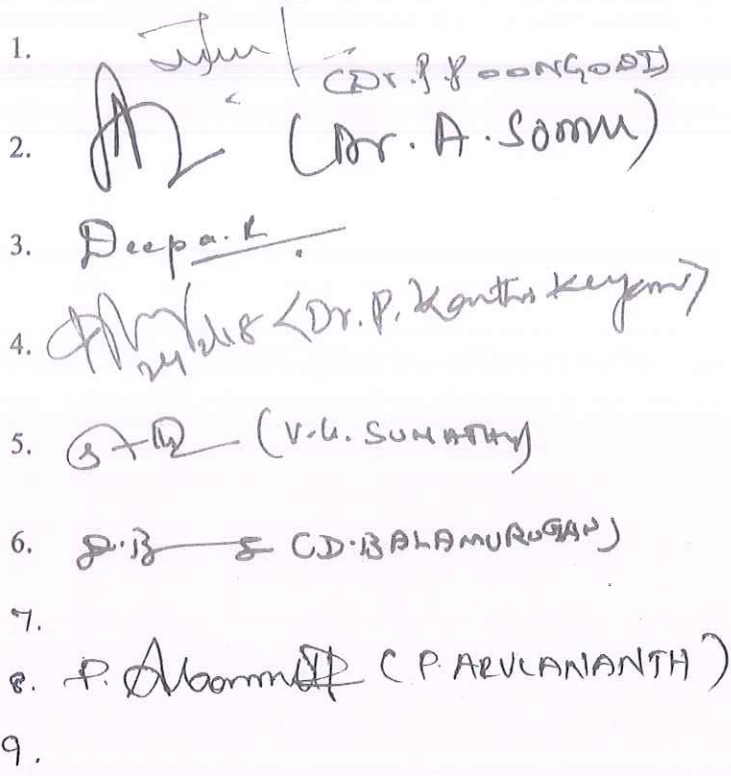 1. (Dr. P. POONGODI)
2. (Dr. A. Somu)
3. Deepa.K
4. (Dr. P. Karthikeyan)
5. (V.G. SUMATHY)
6. D.B (D.BALAMURUGAN)
7.
8. P. (P. ARULANANTH)
9.